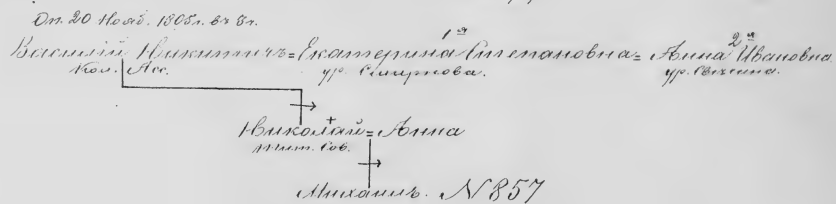 Оп. 20 Нояб. 1805 г. въ 3 г.
1я 2я
Василій Никитичъ = Екатерина Степановна = Анна Ивановна
Кол. Асс. ур. Смирнова. ур.
Николай = Анна
тит. сов.
Михаилъ. N 857